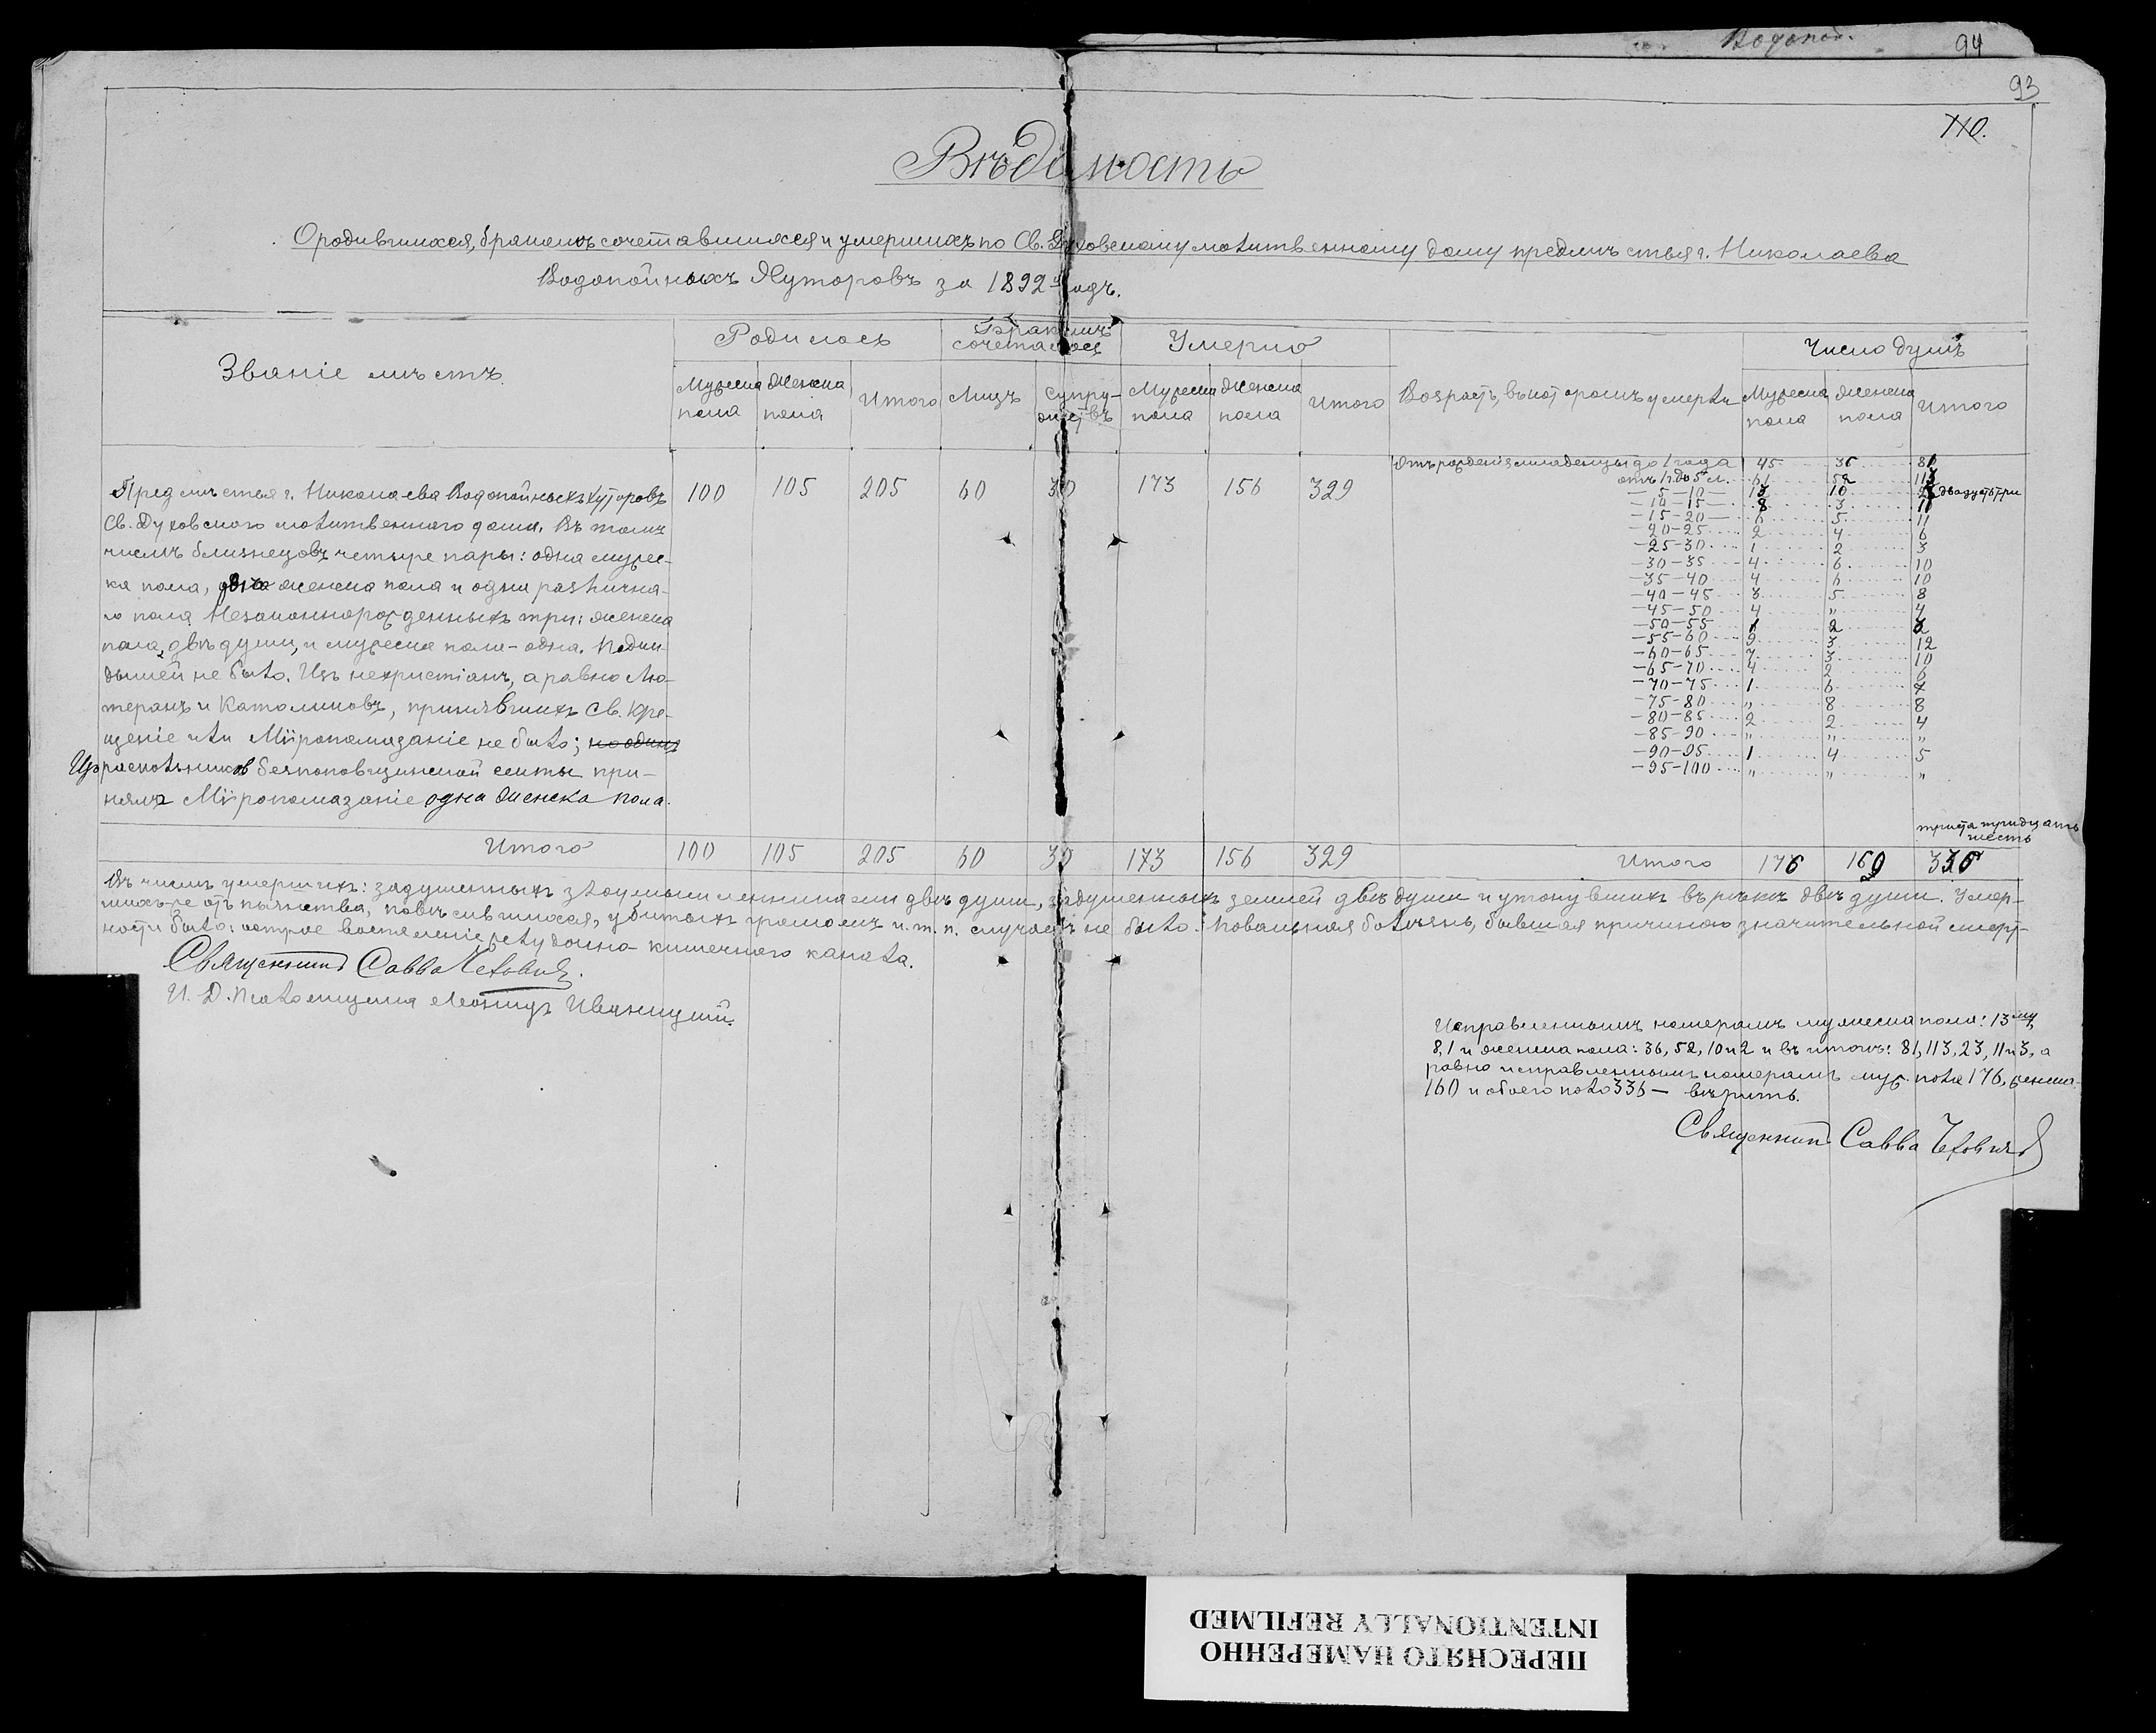 Водопой.
94
93
110.
Вѣдомость
О родившихся, бракомъ сочетавшихся и умершихъ по Св. Духовскому молитвенному дому предмѣстья г. Николаева
Водопойныхъ Хуторовъ за 1892й годъ.
Званіе мѣстъ.
Родилось
Бракомъ сочеталось
Умерло
Число душъ
Мужеска пола
Женска пола
Итого
Лицъ
Супружествъ
Мужеска пола
Женска пола
Итого
Возрастъ, въ которомъ умерли
Мужеска пола
Женска пола
Итого
Предмѣстья г. Николаева Водопойныхъ Хуторовъ 100 105 205 60 30 173 156 329
Св. Духовского молитвенного дома. Въ томъ
числѣ близнецовъ четыре пары: одна мужес-
ка пола, двѣ женска пола и одна различна-
го пола. Незаконнорожденныхъ три: женска
пола, двѣ души, и мужеска пола - одна. Подки-
дышей не было. Изъ нехристіанъ, а равно Лю-
теранъ и Католиковъ, принявшихъ Св. Кре-
щеніе или Мѵропомазаніе не было; но одинъ
Изъ раскольниковъ безпоповщинской секты при-
няла Мѵропомазаніе одна женска пола.
Отъ рожденія младенцы до 1 года 45 36 81
отъ 1 г. до 5 л. 61 52 113
— 5 — 10 — 13 10 23 двадцать три
— 10 — 15 — 8 3 11
— 15 — 20 — 6 5 11
— 20 — 25 2 4 6
— 25 — 30 1 2 3
— 30 — 35 4 6 10
— 35 — 40 4 6 10
— 40 — 45 3 5 8
— 45 — 50 4 „ 4
— 50 — 55 1 2 3
— 55 — 60 9 3 12
— 60 — 65 7 3 10
— 65 — 70 4 2 6
— 70 — 75 1 6 7
— 75 — 80 „ 8 8
— 80 — 85 2 2 4
— 85 — 90 „ „ „
— 90 — 95 1 4 5
— 95 — 100 „ „ „
триста тридцать
шесть
Итого 100 105 205 60 30 173 156 329 Итого 176 160 336
Въ числѣ умершихъ: задушенныхъ злоумышленниками двѣ души, задушенныхъ землей двѣ души и утонувшихъ въ рѣкѣ двѣ души. Умер-
шихъ-же отъ пьянства, повѣсившихся, убитыхъ громомъ и. т. п. случаевъ не было. Повальная болѣзнь, бывшая причиною значительной смерт-
ности было: острое воспаленіе желудочно-кишечного канала.
Священникъ Савва
И. Д. Псаломщика Леонидъ Иваницкій.
Исправленнымъ номерамъ мужеска пола: 13му,
8, 1 и женска пола: 36, 52, 10 и 2 и въ итогѣ: 81, 113, 23, 11 и 3, а
равно исправленнымъ номерамъ муж. пола 176, женска
160 и обоего пола 336 — вѣрить.
Священникъ Савва
ПЕРЕСНЯТО НАМЕРЕННО
INTENTIONALLY REFILMED